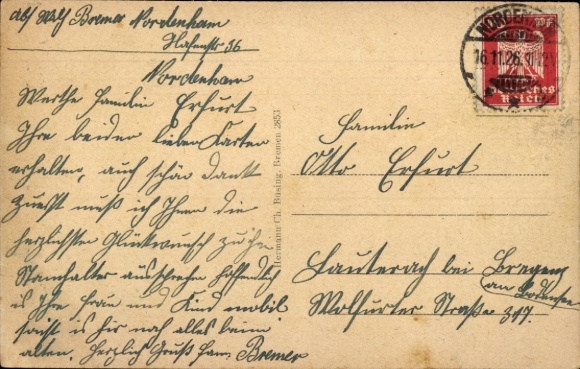 Abs Wilh Bremer Nordenham
Hafenstr 36
Nordenham
Werthe Familie Erfurt
Ihre beiden lieben Karten
erhalten, auch schön Dank
Zuerst muß ich Ihnen die
herzlichsten Glückwunsch zu ihr
Stammhalter aussprechen hoffendlich
is Ihre Frau und Kind mobil
sonst is hir noch alles beim
alten. Herzlich Gruß Fam. Bremer
Hermann Ch. Büsing, Bremen 2853
NORDENHAM
16.11.26.
Pf
Deutsches
Reich
Familie
Otto Erfurt
Lauterach bei Bregenz
am Bodensee
Wolfurter Straße 317.